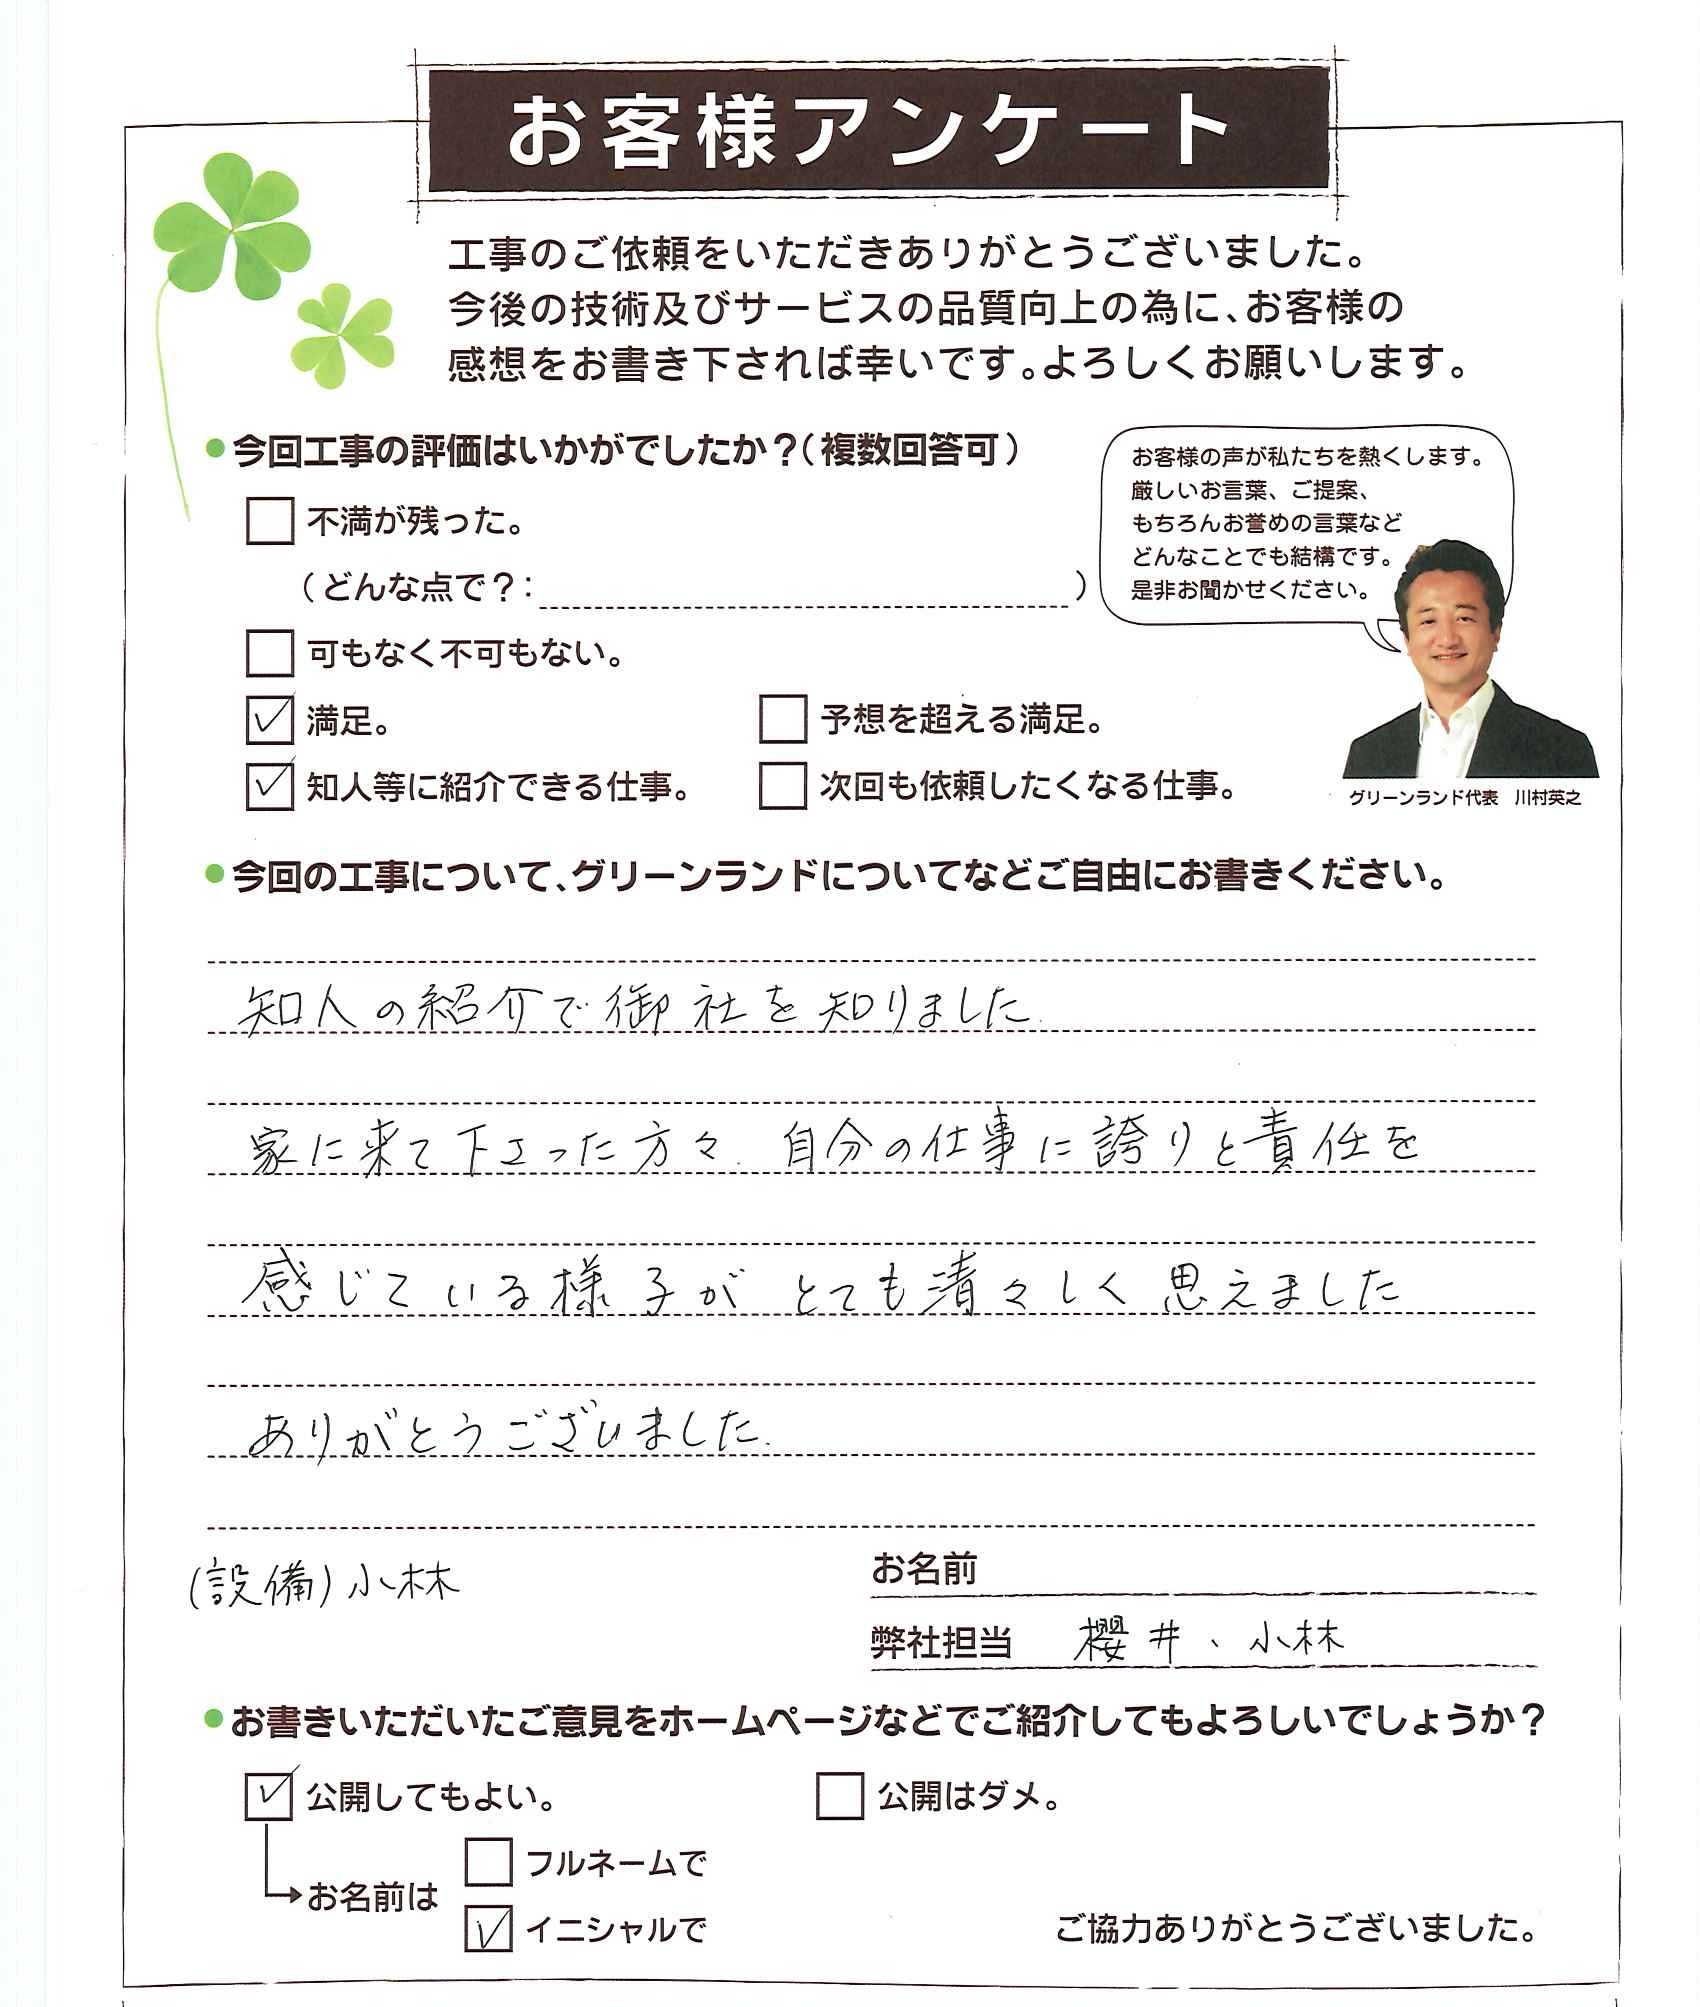 お客様アンケート
工事のご依頼をいただきありがとうございました。
今後の技術及びサービスの品質向上の為に、お客様の
感想をお書き下されば幸いです。よろしくお願いします。
●今回工事の評価はいかがでしたか？（複数回答可）
お客様の声が私たちを熱くします。
厳しいお言葉、ご提案、
もちろんお誉めの言葉など
どんなことでも結構です。
是非お聞かせください。
グリーンランド代表　川村英之
□ 不満が残った。
（どんな点で？：　　　　）
□ 可もなく不可もない。
☑ 満足。　□ 予想を超える満足。
☑ 知人等に紹介できる仕事。　□ 次回も依頼したくなる仕事。
●今回の工事について、グリーンランドについてなどご自由にお書きください。
知人の紹介で御社を知りました.
家に来て下さった方々. 自分の仕事に誇りと責任を
感じている様子が とても清々しく思えました
ありがとうございました.
(設備) 小林
お名前
弊社担当　櫻井、小林
●お書きいただいたご意見をホームページなどでご紹介してもよろしいでしょうか？
☑ 公開してもよい。　□ 公開はダメ。
お名前は
□ フルネームで
☑ イニシャルで
ご協力ありがとうございました。